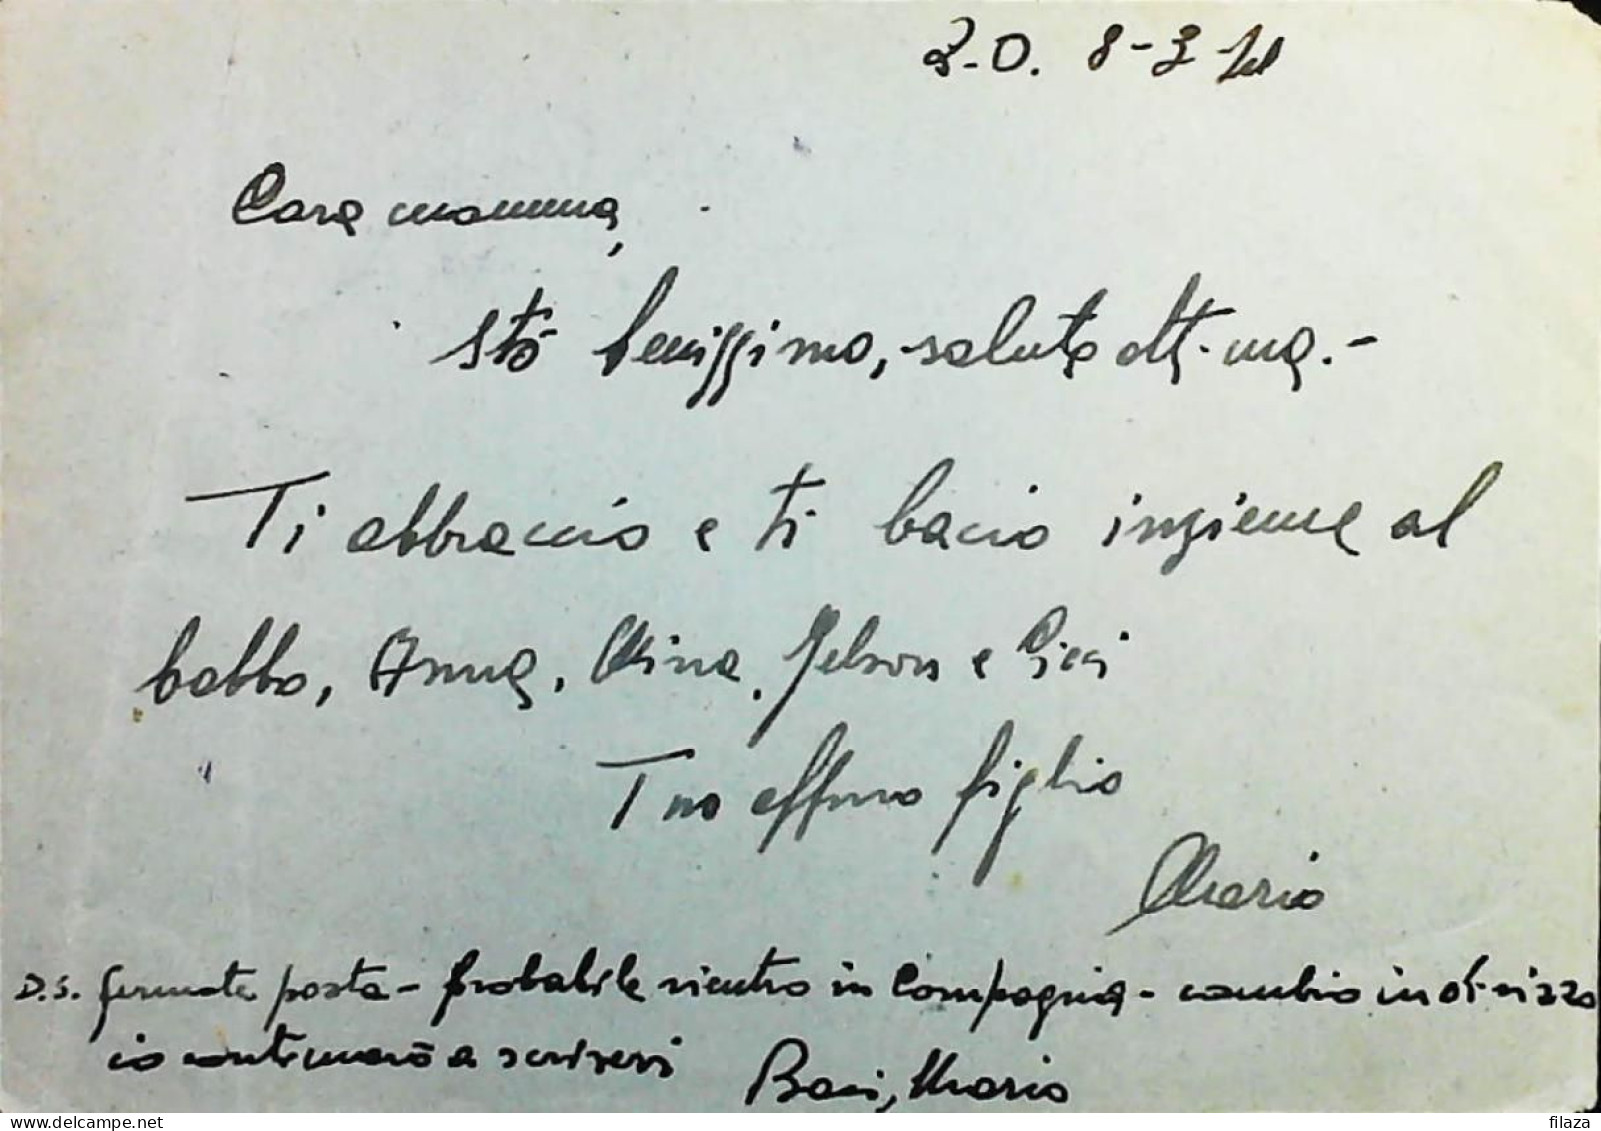 Z.O. 8-3
Cara mamma,
Stò benissimo, salute ottima.-
Ti abbraccio e ti bacio insieme al
babbo, Anna, Mina, Nelson e Cicci
Tuo affmo figlio
Mario
D.S. fermate posta - probabile rientro in Compagnia - cambio indirizzo
io continuerò a scrivervi Baci, Mario
delcampe.net
filaza